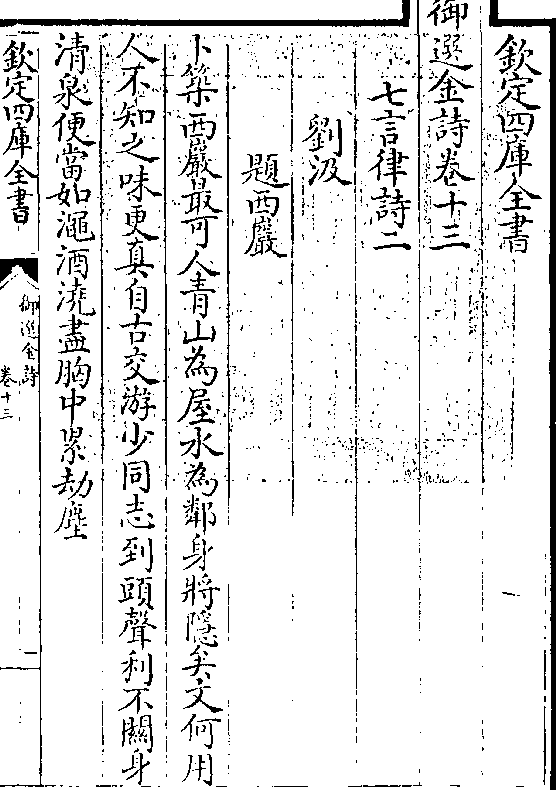 欽定四庫全書
御選金詩卷十三
七言律詩二
劉汲
題西巖
卜築西巖最可人青山為屋水為鄰身將隱矣文何用
人不知之味更真自古交游少同志到頭聲利不關身
清泉便當如澠酒澆盡胸中累劫塵
欽定四庫全書
御選金詩
卷十三
一